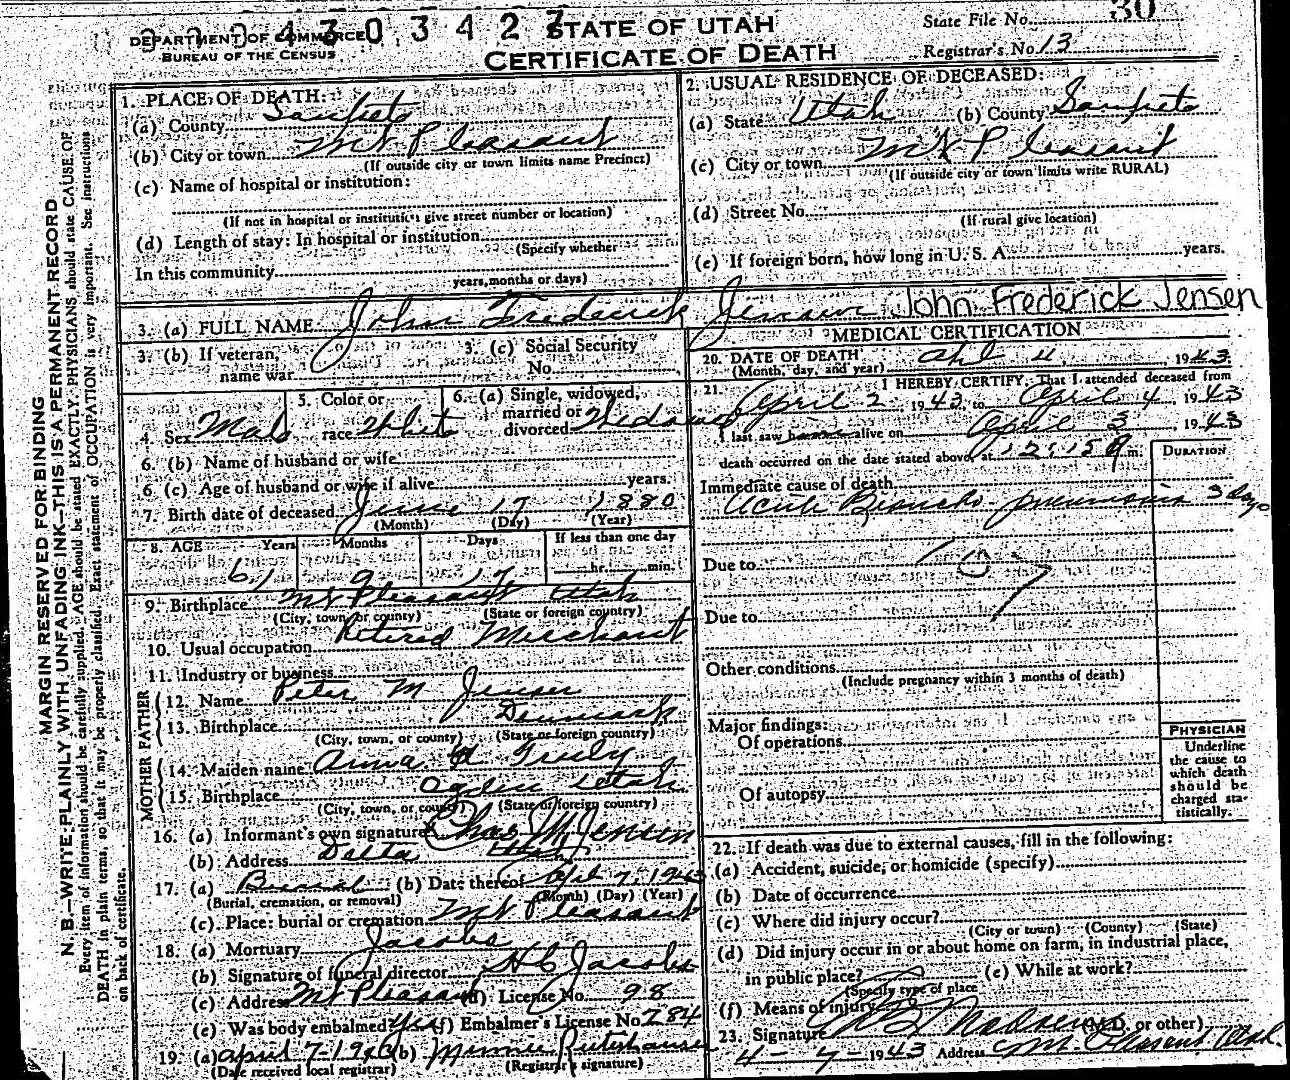 DEPARTMENT OF COMMERCE
BUREAU OF THE CENSUS
4303427
STATE OF UTAH
CERTIFICATE OF DEATH
State File No. 30
Registrar's No. 13
MARGIN RESERVED FOR BINDING
N. B.—WRITE PLAINLY WITH UNFADING INK—THIS IS A PERMANENT RECORD
Every item of information should be carefully supplied. AGE should be stated EXACTLY. PHYSICIANS should state CAUSE OF
DEATH in plain terms, so that it may be properly classified. Exact statement of OCCUPATION is very important. See instructions
on back of certificate.
1. PLACE OF DEATH:
(a) County Sanpete
(b) City or town Mt Pleasant
(If outside city or town limits name Precinct)
(c) Name of hospital or institution:
(If not in hospital or institution give street number or location)
(d) Length of stay: In hospital or institution
(Specify whether
In this community
years, months or days)
2. USUAL RESIDENCE OF DECEASED:
(a) State Utah (b) County Sanpete
(c) City or town Mt Pleasant
(If outside city or town limits write RURAL)
(d) Street No.
(If rural give location)
(e) If foreign born, how long in U. S. A. years.
3. (a) FULL NAME: John Frederick Jensen John Frederick Jensen
3. (b) If veteran,
name war
3. (c) Social Security
No.
4. Sex Male
5. Color or
race White
6. (a) Single, widowed,
married or
divorced Widowed
6. (b) Name of husband or wife
6 (c) Age of husband or wife if alive years.
7. Birth date of deceased June 17 1880
(Month) (Day) (Year)
8. AGE Years Months Days If less than one day
hr. min.
61 9 17
9. Birthplace Mt Pleasant Utah
(City, town, or county) (State or foreign country)
10. Usual occupation Retired Merchant
11. Industry or business
FATHER
12. Name Peter M Jensen
13. Birthplace Denmark
(City, town, or county) (State or foreign country)
MOTHER
14. Maiden name Anna
15. Birthplace Ogden Utah
(City, town, or county) (State or foreign country)
16. (a) Informant's own signature Chas M Jensen
(b) Address Delta Utah
17. (a) Burial (b) Date thereof April 7, 1943
(Burial, cremation, or removal) (Month) (Day) (Year)
(c) Place: burial or cremation Mt Pleasant
18. (a) Mortuary Jacobs
(b) Signature of funeral director H C Jacobs
(c) Address Mt Pleasant (d) License No. 98
(e) Was body embalmed? Yes (f) Embalmer's License No. 284
19. (a) April 7-1943 (b) Minnie
(Date received local registrar) (Registrar's signature)
MEDICAL CERTIFICATION
20. DATE OF DEATH 4, 1943
(Month, day, and year)
21. I HEREBY CERTIFY, That I attended deceased from
April 2 1943, to April 4 1943
I last saw alive on April 3 1943
death occurred on the date stated above, at 12:15 m.
DURATION
Immediate cause of death
Acute Broncho pneumonia 3 days
Due to
107
Due to
Other conditions
(Include pregnancy within 3 months of death)
Major findings:
Of operations
Of autopsy
PHYSICIAN
Underline
the cause to
which death
should be
charged sta-
tistically.
22. If death was due to external causes, fill in the following:
(a) Accident, suicide, or homicide (specify)
(b) Date of occurrence
(c) Where did injury occur?
(City or town) (County) (State)
(d) Did injury occur in or about home on farm, in industrial place,
in public place? (e) While at work?
(Specify type of place
(f) Means of injury
23. Signature Madsen (M.D. or other)
4-7-1943 Address Mt Pleasant Utah.